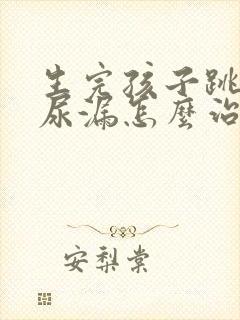 生完孩子跳
尿漏怎麼治
安梨棠